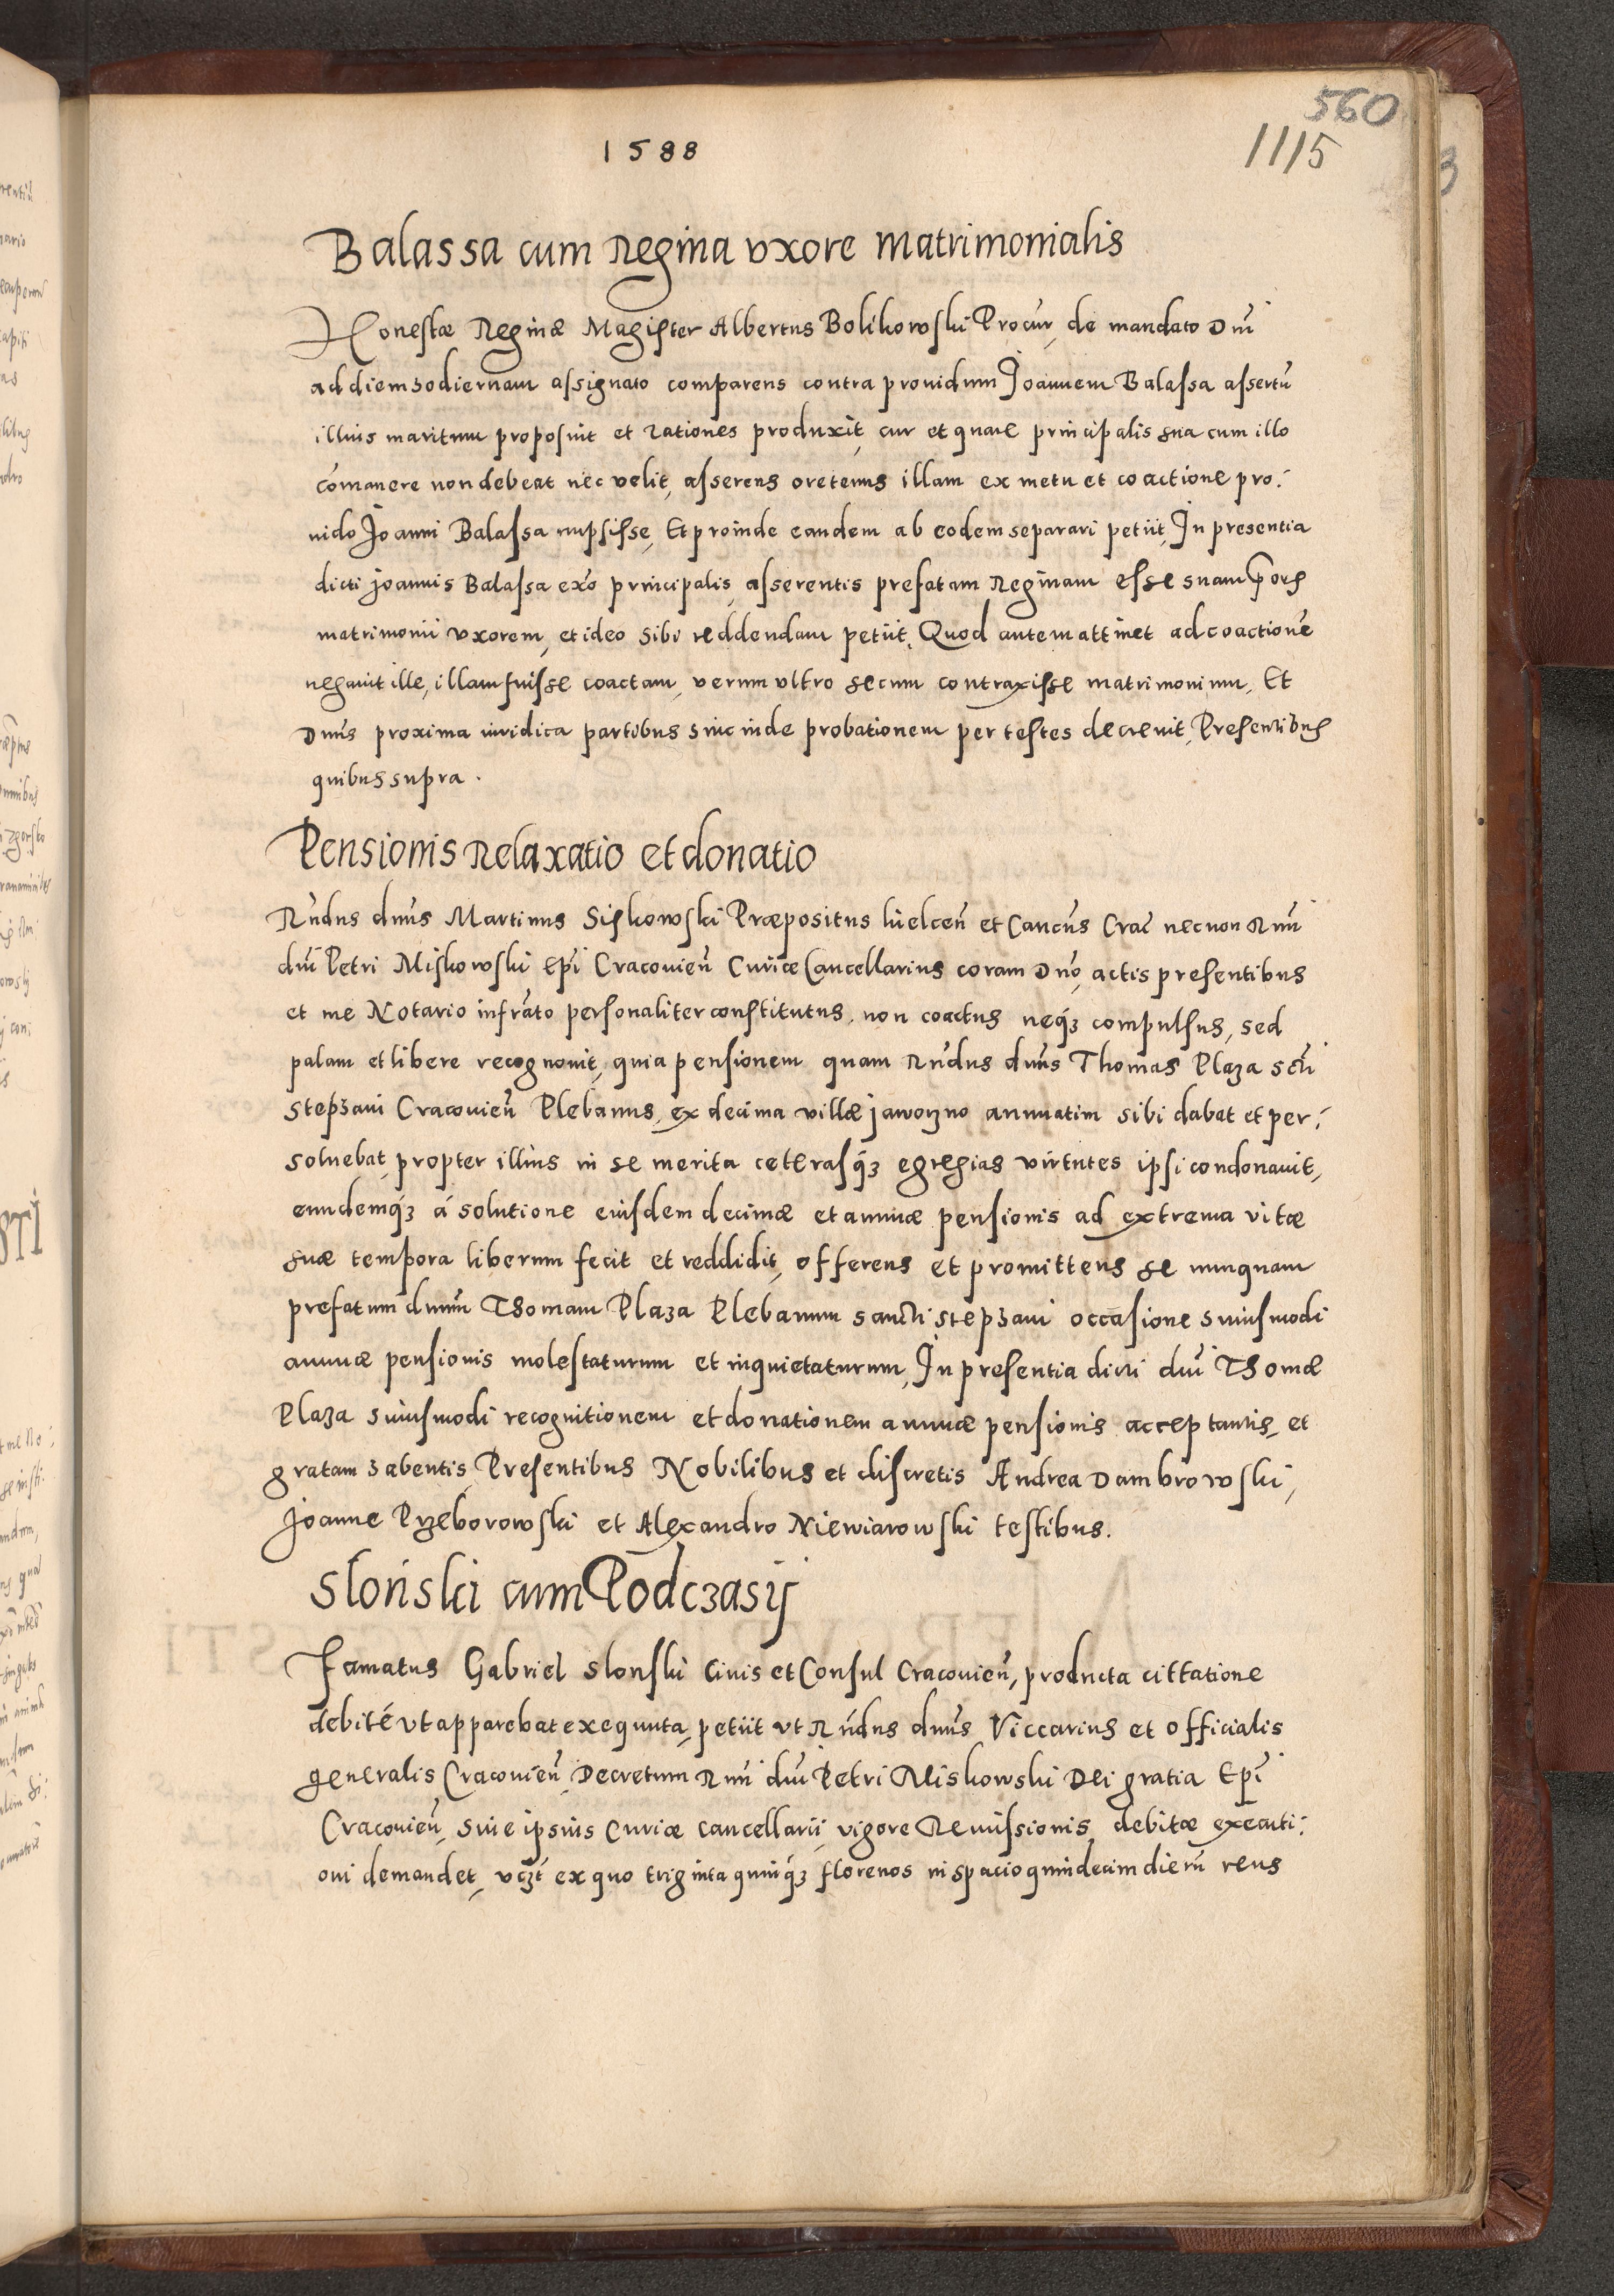 560
1588
1115
Balassa cum Regina vxore matrimonialis
Honestæ Reginæ Magister Albertus Bolikowski Procur, de mandato Dni
ad diem hodiernam assignato comparens contra prouidum Joannem Balassa assertu
illius maritum proposuit et rationes produxit, cur et quare principalis sua cum illo
comanere non debeat nec velit, asserens oretenus illam ex metu et coactione pro:
uido Joanni Balassa nupsisse, Et proinde eandem ab eodem separari petiit, In presentia
dicti Joannis Balassa exo principalis, asserentis prefatam Reginam esse suam
matrimonii vxorem, et ideo sibi reddendam petiit, Quod autem attinet ad coactione
negauit ille, illam fuisse coactam, verum vltro secum contraxisse matrimonium, Et
Dnus proxima iuridica partibus hinc inde probationem per testes decreuit, Presentibus
quibus supra.
Pensionis Relaxatio et donatio
Rndus dnus Martinus Siskowski Præpositus kielcen et Cancus Crac necnon Rmi
dni Petri Miskowski Epi Cracouien Curiæ Cancellarius coram Dno, actis presentibus
et me Notario infrato personaliter constitutus, non coactus neqз compulsus, sed
palam et libere recognouit, quia pensionem quam Rndus dnus Thomas Plaza scti
stephani Cracouien Plebanus, ex decima villæ jaworzno annuatim sibi dabat et per:
soluebat, propter illius in se merita ceterasqз egregias virtutes ipsi condonauit,
eundemqз á solutione eiusdem decimæ et annuæ pensionis ad extrema vitæ
suæ tempora liberum fecit et reddidit, offerens et promittens se nunquam
prefatum dnum Thomam Plaza Plebanum sancti stephani occasione huiusmodi
annuæ pensionis molestaturum et inquietaturum, In presentia dicti dni Thomæ
Plaza huiusmodi recognitionem et donationem annuæ pensionis acceptantis, et
gratam habentis, Presentibus Nobilibus et discretis Andrea Dambrowski,
Joanne Przeborowski et Alexandro Niewiarowski testibus.
Sloński cum Podczasij
Famatus Gabriel slonski Ciuis et Consul Cracouien, producta cittatione
debité vt apparebat exequuta, petiit vt Rndus dnus Viccarius et Officialis
generalis Cracouien, Decretum Rmi dni Petri Miskowski Dei gratia Epi
Cracouien, siue ipsius Curiæ cancellarii, vigore Remissionis debitæ executi:
oni demandet, vczt ex quo triginta quinqз florenos in spacio quindecim dieru reus